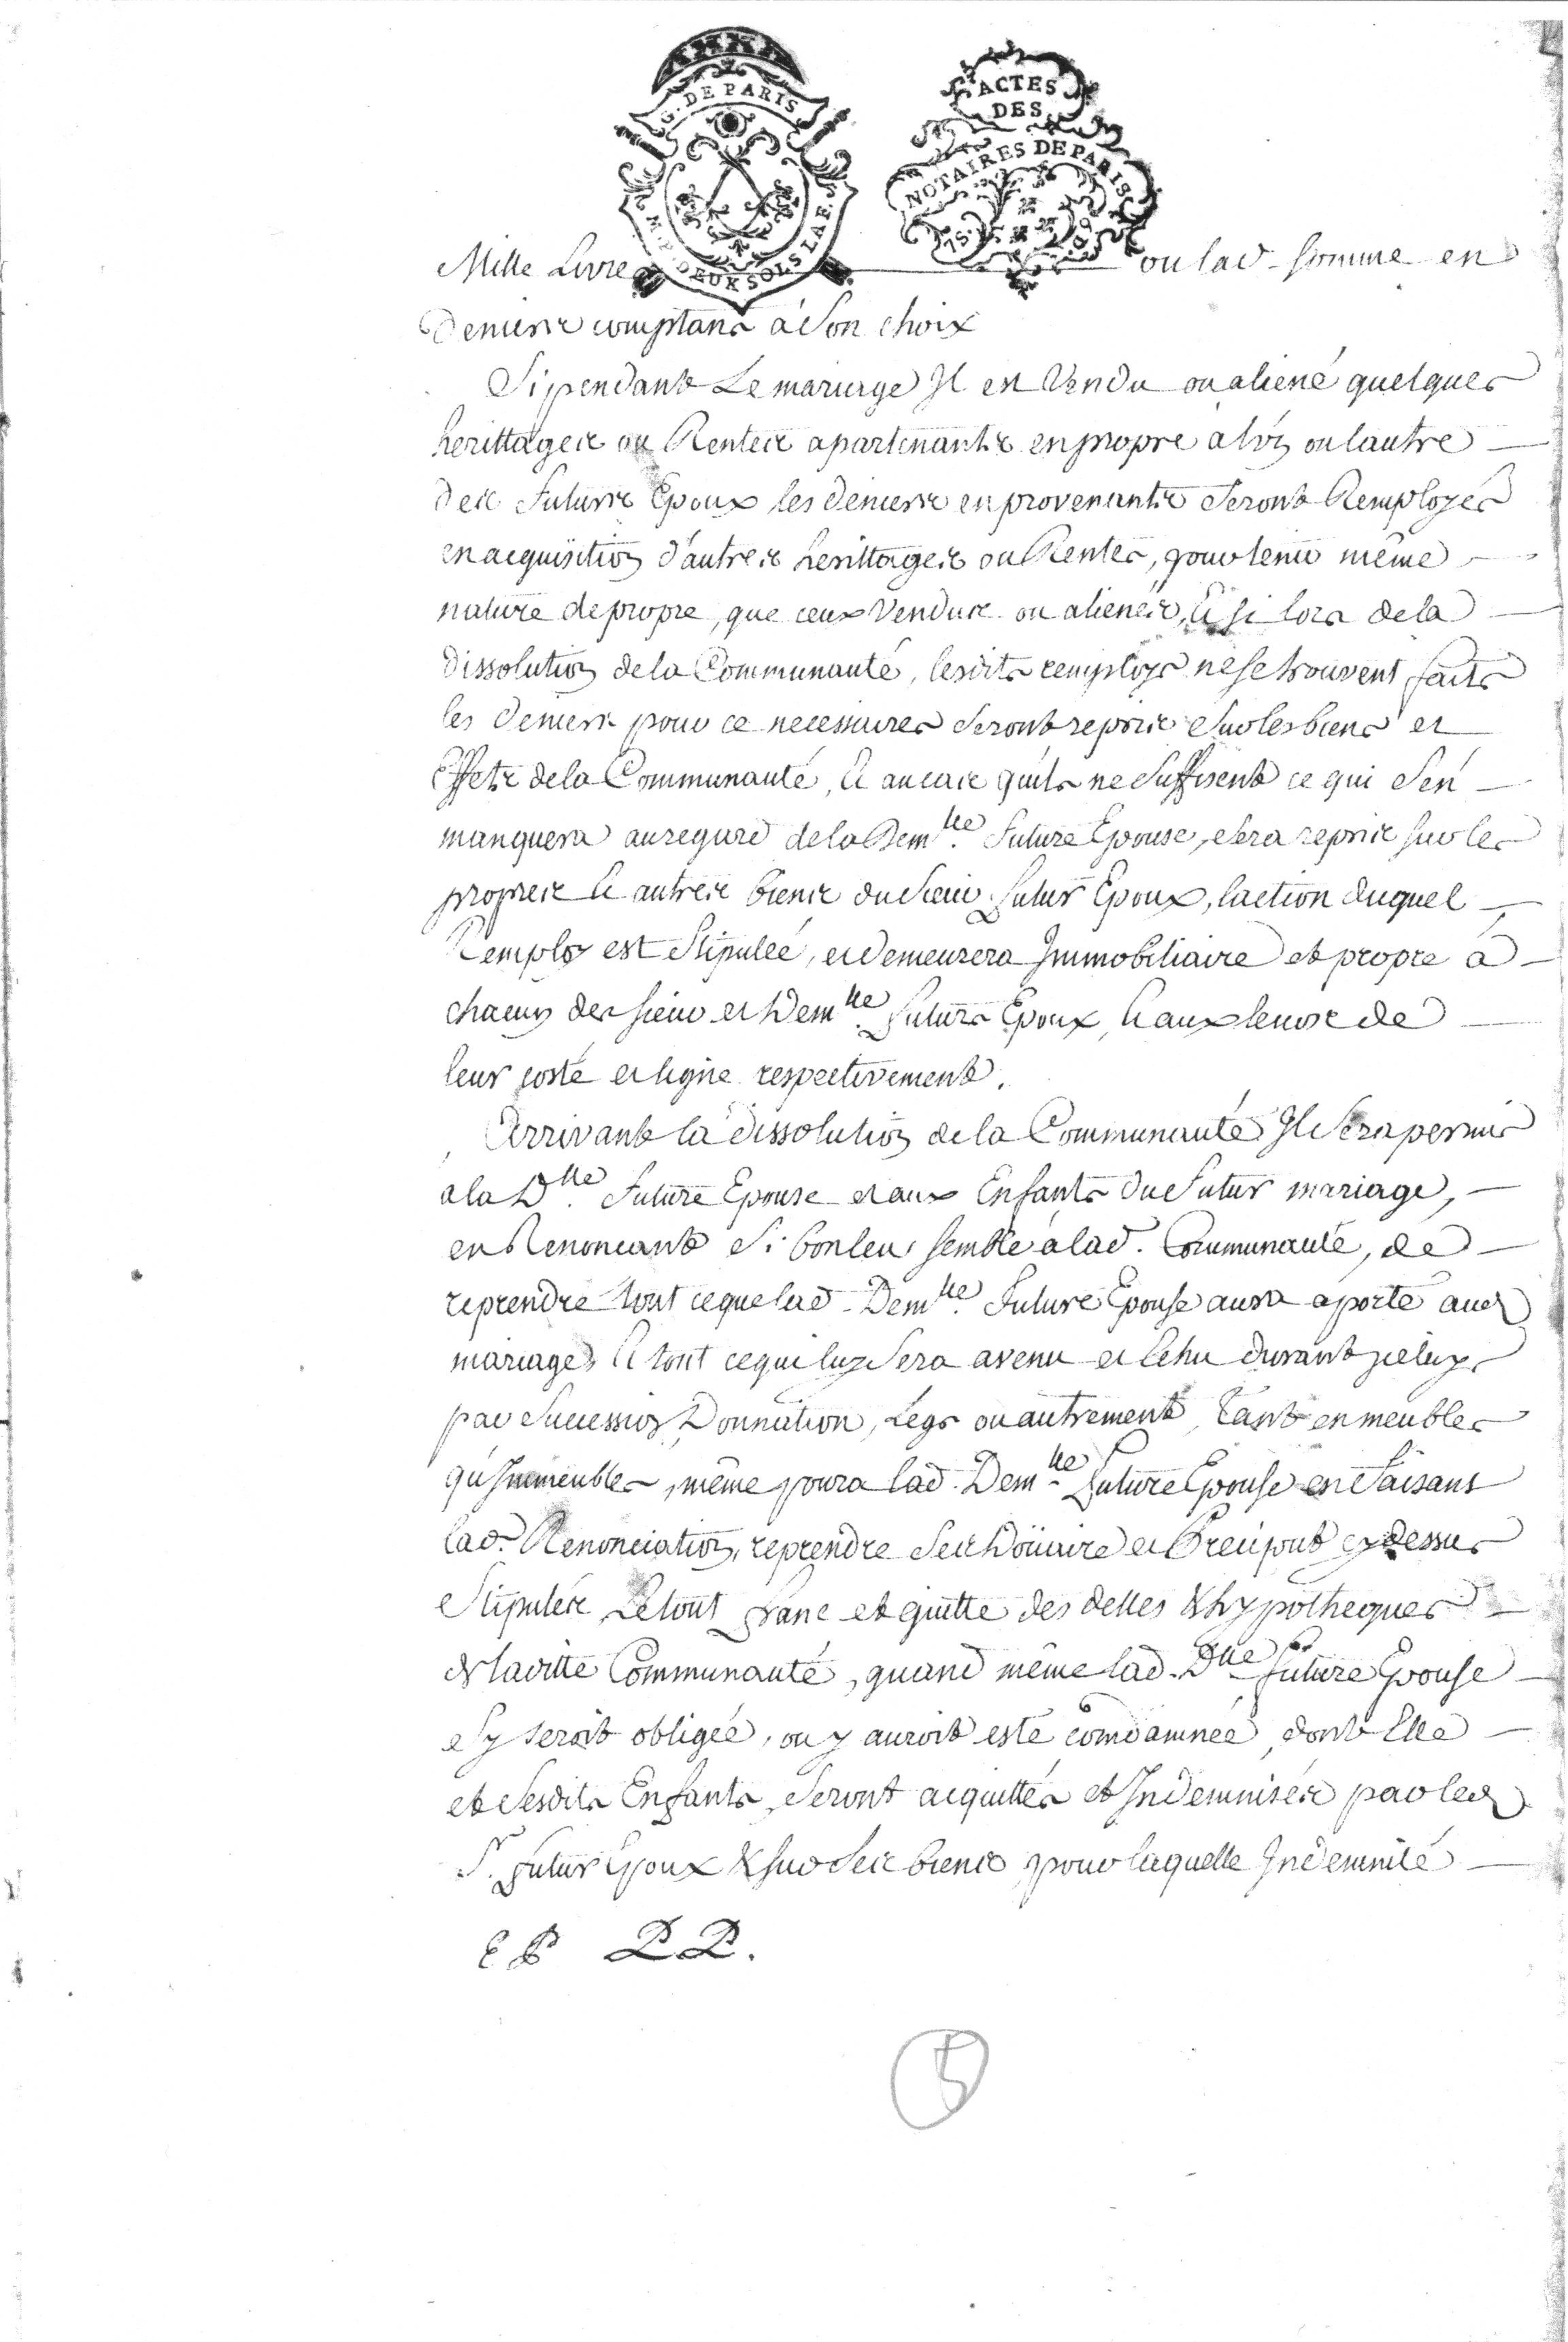 G. DE PARIS
ACTES
DES
NOTAIRES DE PARIS
DEUX SOLS LA F.
Mille Livres ou lad. somme en
Deniers comptans à son choix
Si pendant Le mariage Il est Vendu ou aliené quelques
herittages ou Rentes apartenants en propre a l'un ou l'autre
des futurs Epoux les deniers en provenants seront Remployés
en acquisition d'autres herittages ou Rentes, pour tenir même
nature de propre, que ceux Vendus ou alienés, & si lors de la
dissolution de la Communauté, lesdits remploys ne se trouvent faits
les deniers pour ce necessaires seront repris sur les biens et
Effets de la Communauté, & au cas qu'ils ne suffisent ce qui s'en
manquera au regard de la Dem.lle future Epouse, sera repris sur les
propres & autres biens du sieur futur Epoux, l'action duquel
Remploy est stipulée, et demeurera Immobiliaire et propre à
chacun des sieur et Dem.lle futurs Epoux, & aux leurs de
leur costé et ligne respectivement.
Arrivant la dissolution de la Communauté Il sera permis
a la D.lle future Epouse et aux Enfants du futur mariage,
en Renonçant si bon leur semble à lad. Communauté, de
reprendre tout ce que lad. Dem.lle future Epouse aura aporté aud.
mariage, & tout ce qui luy sera avenu et echu durant jceluy
par succession, Donnation, Legs ou autrement, tant en meubles
qu'Immeubles, même poura lad. Dem.lle future Epouse en faisant
lad. Renonciation, reprendre ses Doüaire et Preciput cy dessus
stipulés, Le tout franc et quitte des dettes & hypotheques
de laditte Communauté, quand même lad. Dlle future Epouse
s'y seroit obligée, ou y auroit esté condamnée, dont Elle
et sesdits Enfants, seront acquittés et Indemnisés par led.
S. futur Epoux & sur ses biens pour laquelle Indemnité
5